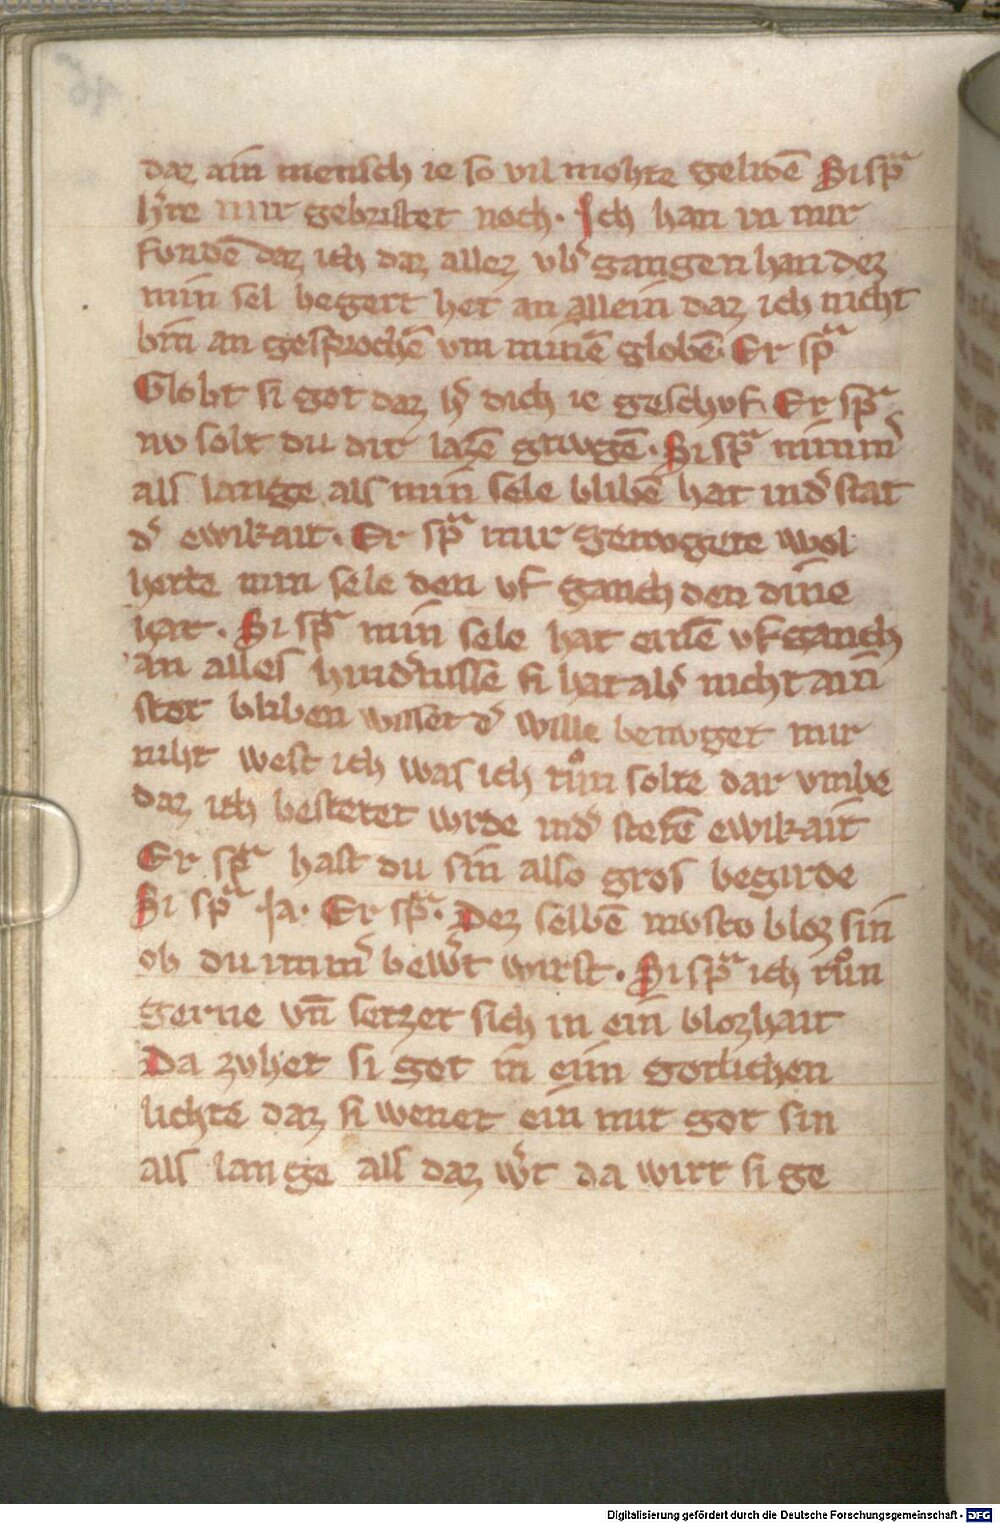 daz ain mensch ie so vil mohte gelidē Si spͣ
h̓re mir gebristet noch. Ich han in mir
fundē daz ich daz allez vb̓ gangen han dez
min sel begert het an allein daz ich nicht
bin an gesprochē vm minē globē. Er spͣ
Globt si got daz h̓ dich ie geschvf. Er spͣ
nv solt du dir lazē gnvgē. Si spͣ nimm̓
als lange als min sele blibē hat in d̓ stat
d̓ ewikait. Er spͣ mir genvgete wol
herte min sele den vf ganch den dine
hat. Si spͣ min sele hat einē vfganch
an alles hind̓nisse si hat ab̓ nicht ain
stet bliben wisset d̓ wille benvget mir
niht west ich was ich tůn solte dar vmbe
daz ich bestetet wrde in d̓ stetē ewikait
Er spͣ hast du sin also gros begirde
Si spͣ Ja. Er spͣ. Dez selbē mvsto bloz sin
ob du imm̓ bew̓t wirst. Si spͣ ich tůn
gerne vn̄ setzet sich in ein blozhait
Da zvhet si got in eim gotlichen
lichte daz si wenet ein mit got sin
als lange als daz w̓t da wirt si ge
Digitalisierung gefördert durch die Deutsche Forschungsgemeinschaft - DFG